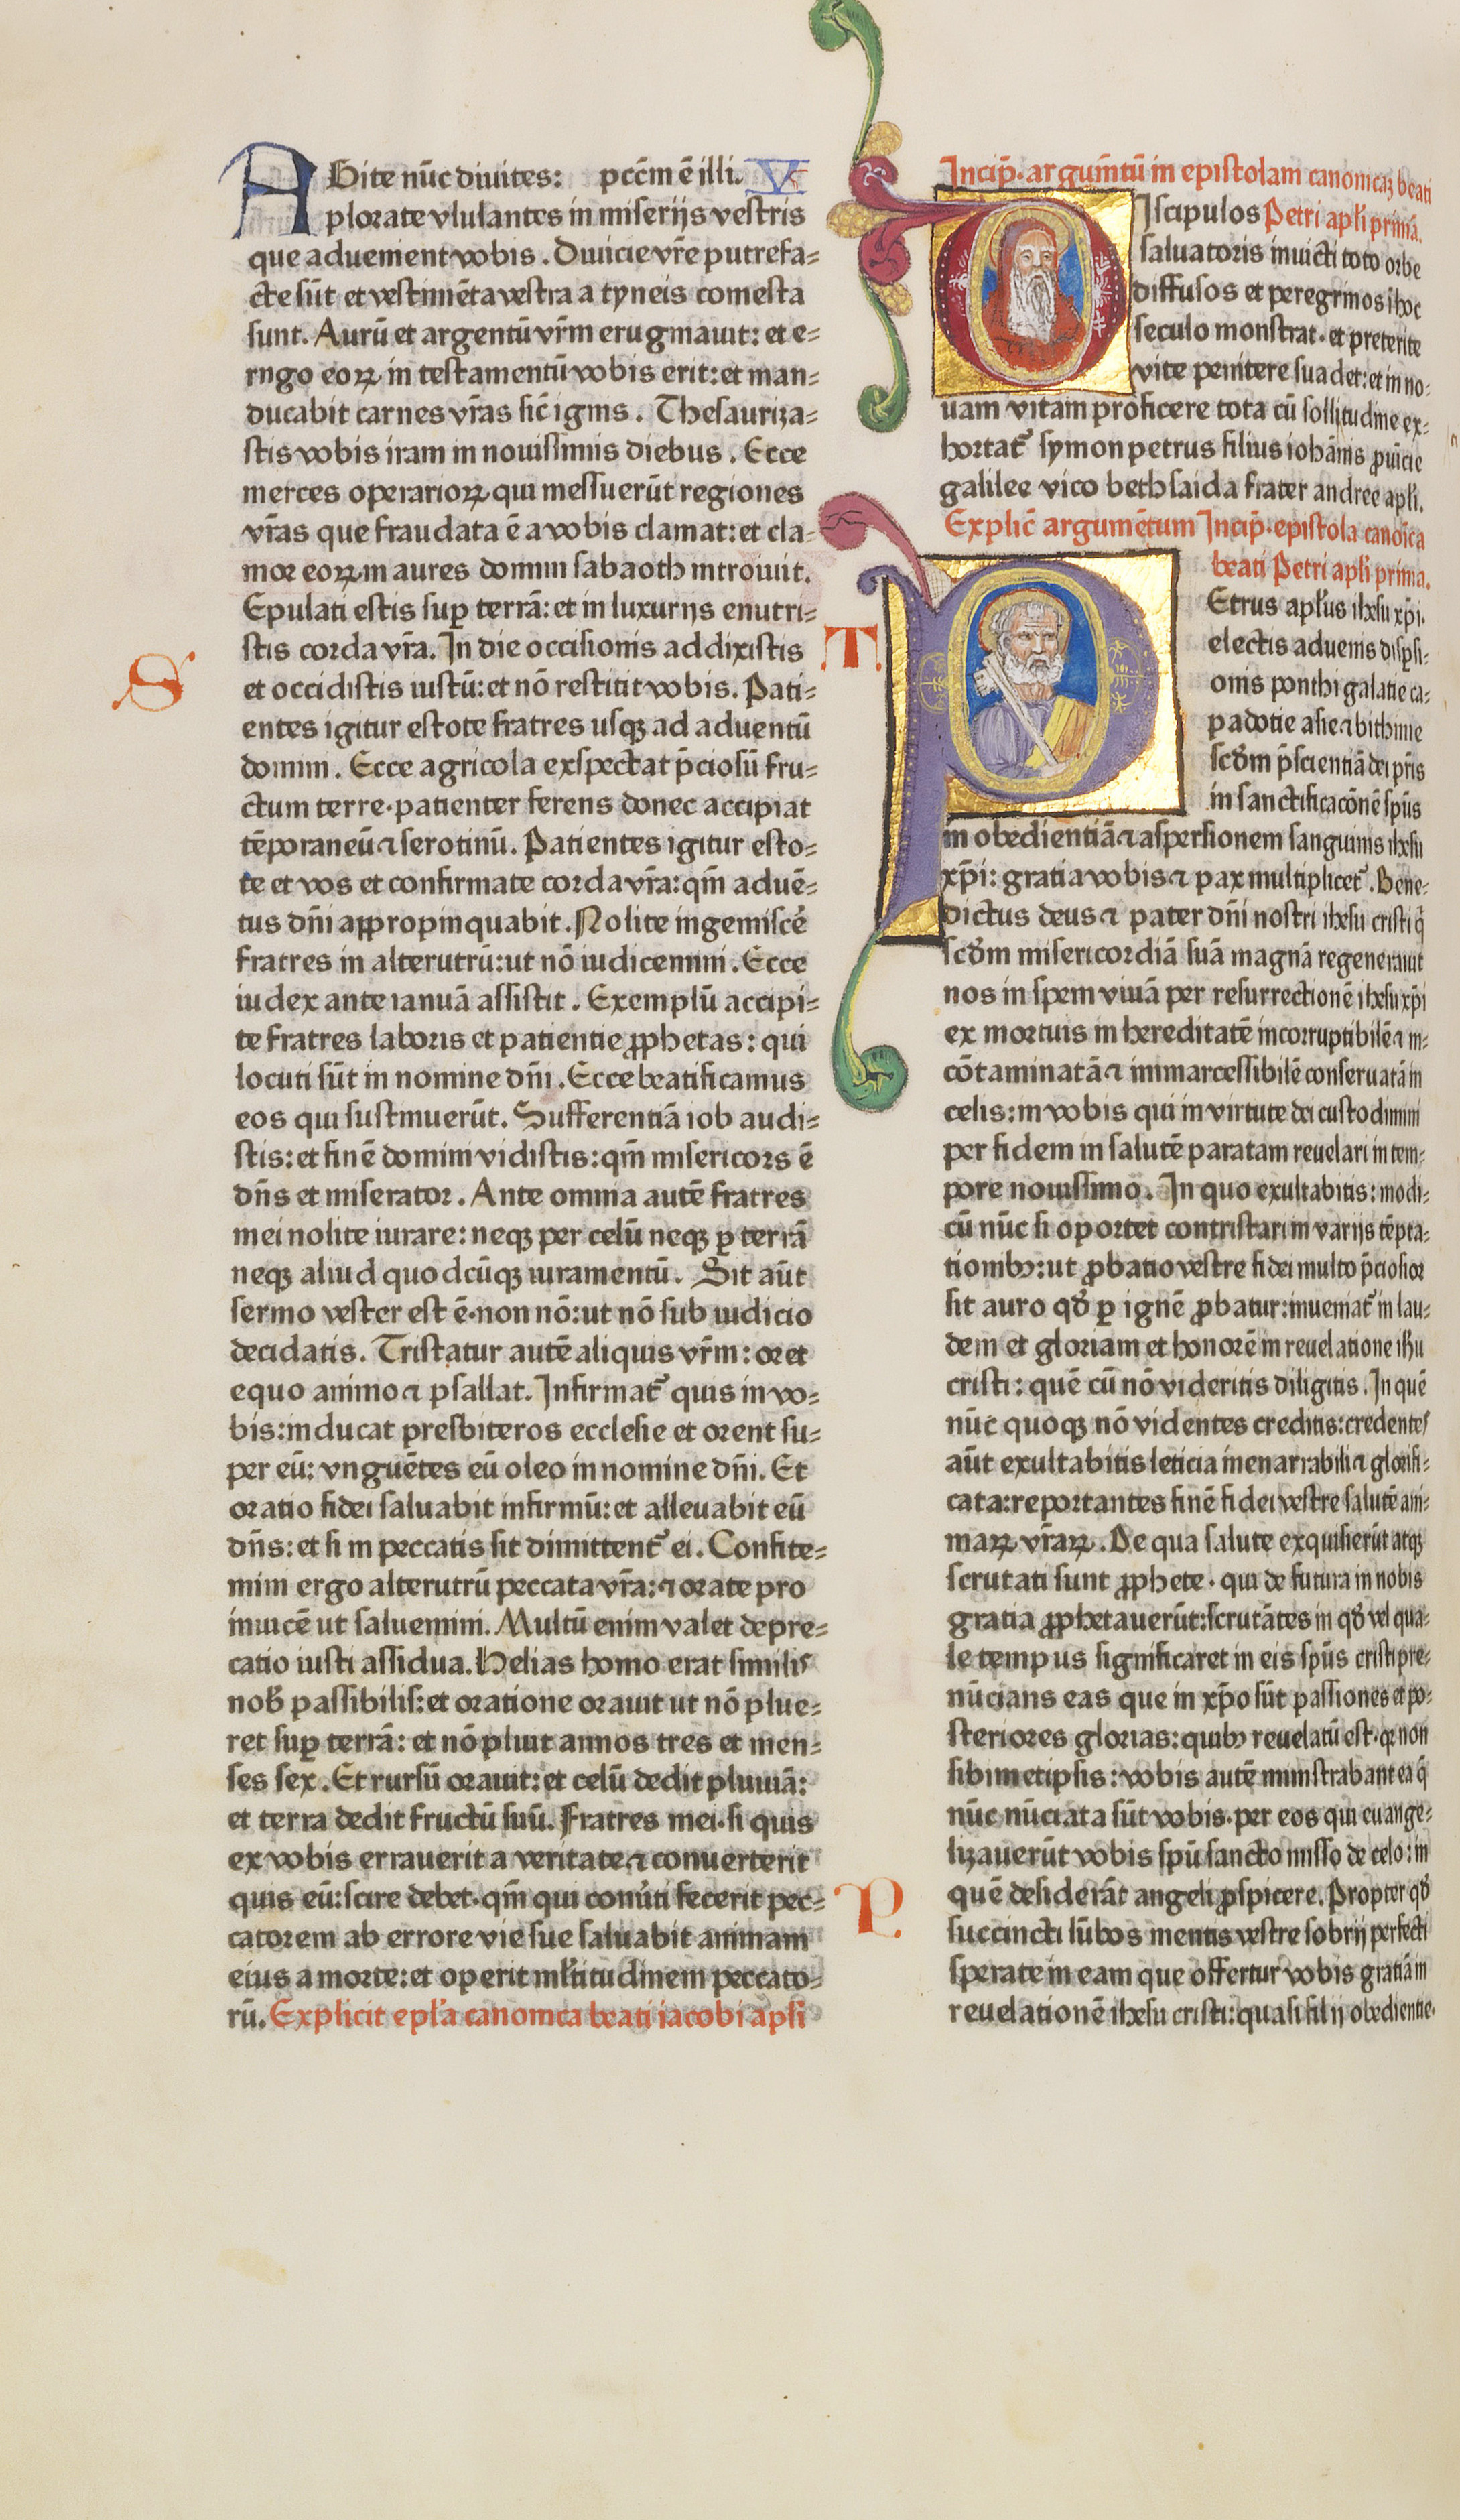 AGite nūc diuites: pccm̄ ē illi. V
plorate vlulantes in miserijs vestris
que aduenient vobis. Diuicie vr̄e putrefa=
cte sūt et vestimēta vestra a tyneis comesta
sunt. Aurū et argentū vr̄m eruginauit: et e=
rugo eoꝝ in testamentū vobis erit: et man=
ducabit carnes vr̄as sic̄ ignis. Thesauriza=
stis vobis iram in nouissimis diebus. Ecce
merces operarioꝝ qui messuerūt regiones
vr̄as que fraudata ē a vobis clamat: et cla=
mor eoꝝ in aures domini sabaoth introiuit.
Epulati estis suꝑ terrā: et in luxurijs enutri=
stis corda vr̄a. In die occisionis addixistis
T
S
et occidistis iustū: et nō restitit vobis. Pati=
entes igitur estote fratres usqꝫ ad aduentū
domini. Ecce agricola exspectat p̄ciosū fru=
ctum terre· patienter ferens donec accipiat
tēporaneū ⁊ serotinū. Patientes igitur esto=
te et vos et confirmate corda vr̄a: qm̄ aduē=
tus dn̄i appropinquabit. Nolite ingemiscē
fratres in alterutrū: ut nō iudicemini. Ecce
iudex ante ianuā assistit. Exemplū accipi=
te fratres laboris et patientie ꝓphetas: qui
locuti sūt in nomine dn̄i. Ecce beatificamus
eos qui sustinuerūt. Sufferentiā iob audi=
stis: et finē domini vidistis: qm̄ misericors ē
dn̄s et miserator. Ante omnia autē fratres
mei nolite iurare: neqꝫ per celū neqꝫ ꝑ terrā
neqꝫ aliud quodcūqꝫ iuramentū. Sit aūt
sermo vester est ē· non nō: ut nō sub iudicio
decidatis. Tristatur autē aliquis vr̄m: oret
equo animo ⁊ psallat. Infirmat̄ quis in vo=
bis: inducat presbiteros ecclesie et orent su=
per eū: vnguētes eū oleo in nomine dn̄i. Et
oratio fidei saluabit infirmū: et alleuabit eū
dn̄s: et si in peccatis sit dimittent̄ ei. Confite=
mini ergo alterutrū peccata vr̄a: ⁊ orate pro
inuicē ut saluemini. Multū enim valet depre=
catio iusti assidua. Helias homo erat similis
nob̄ passibilis: et oratione orauit ut nō plue=
ret suꝑ terrā: et nō pluit annos tres et men=
ses sex. Et rursū orauit: et celū dedit pluuiā:
et terra dedit fructū suū. Fratres mei· si quis
ex vobis errauerit a veritate ⁊ conuerterit
quis eū: scire debet· qm̄ qui conūti fecerit pec=
catorem ab errore vie sue saluabit animam
eius a morte: et operit ml̄titudinem peccato=
rū. Explicit epl̄a canonica beati iacobi apl̄i
Incip̄· argumt̄ū in epistolam canonicaꝫ beati
DIscipulos Petri apl̄i primā.
saluatoris inuicti toto orbe
diffusos et peregrinos ī hoc
seculo monstrat· et preterite
vite penitere suadet: et in no=
uam vitam proficere tota cū sollitudine ex=
hortat̄ symon petrus filius iohānis ꝓuīcie
galilee vico bethsaida frater andree apl̄i.
Explic̄ argumētum Incip̄· epistola canōica
beati Petri apl̄i prima.
PEtrus apl̄us ihesu xp̄i.
electis aduenis disꝑsi=
onis ponthi galatie ca=
padotie asie ⁊ bithinie
scd̄m p̄scientiā dei pr̄is
in sanctificacōnē sp̄us
in obedientiā ⁊ aspersionem sanguinis ihesu
xp̄i: gratia vobis ⁊ pax multiplicet̄. Bene=
dictus deus ⁊ pater dn̄i nostri ihesu cristi q̄
scd̄m misericordiā suā magnā regenerauit
nos in spem viuā per resurrectionē ihesu xp̄i
ex mortuis in hereditatē incorruptibilē ⁊ in=
cōtaminatā ⁊ immarcessibilē conseruatā in
celis: in vobis qui in virtute dei custodimini
per fidem in salutē paratam reuelari in tem=
pore nouissimo. In quo exultabitis: modi=
cū nūc si oportet contristari in varijs tēpta=
tionibꝫ: ut ꝓbatio vestre fidei multo p̄ciosior
sit auro qd̄ ꝑ ignē ꝓbatur: inueniat̄ in lau=
dem et gloriam et honorē in reuelatione ihu
cristi: quē cū nō videritis diligitis. In quē
nūc quoqꝫ nō videntes creditis: credentes
aūt exultabitis leticia inenarrabili ⁊ glorifi=
cata: reportantes finē fidei vestre salutē ani=
maꝝ vr̄aꝝ. De qua salute exquisierūt atqꝫ
scrutati sunt ꝓphete· qui de futura in nobis
gratia ꝓphetauerūt: scrutātes in qd̄ vel qua=
le tempus significaret in eis sp̄us cristi pre=
nūcians eas que in xp̄o sūt passiones et po=
steriores glorias: quibꝫ reuelatū est· qꝛ non
sibimetipsis: vobis autē ministrabant ea q̄
nūc nūciata sūt vobis· per eos qui euange=
lizauerūt vobis sp̄u sancto misso de celo: in
P
quē desiderāt angeli ꝓspicere. Propter qd̄
succincti lūbos mentis vestre sobrij perfecti
sperate in eam que offertur vobis gratiā in
reuelationē ihesu cristi: quasi filij obedientie·